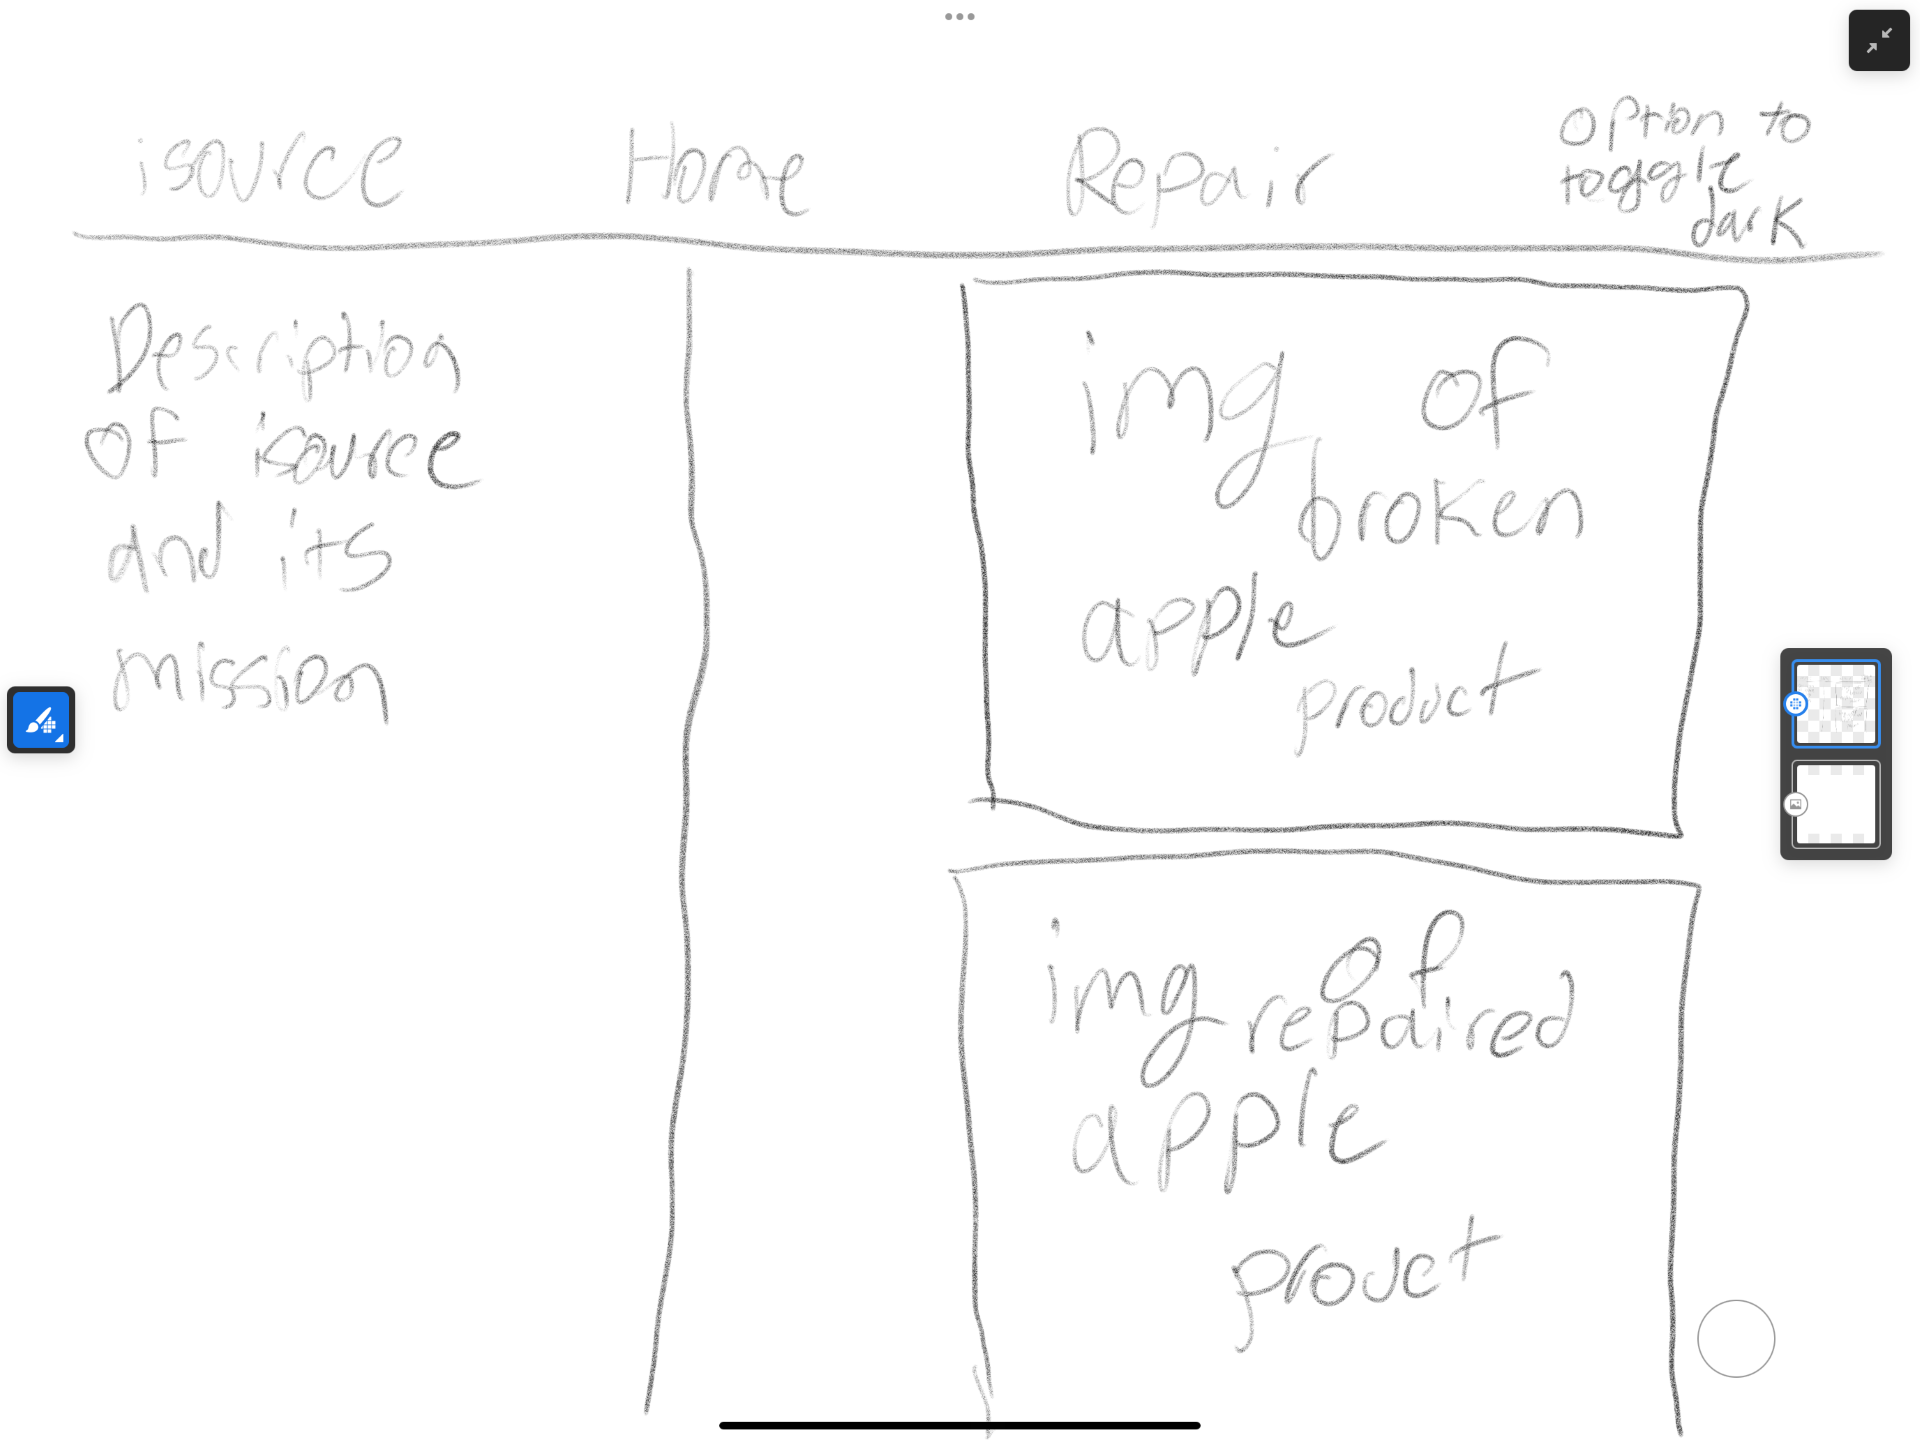 isource Home Repair option to
toggle
dark
Description
of isource
and its
mission
img of
broken
apple
product
img of
repaired
apple
prouct